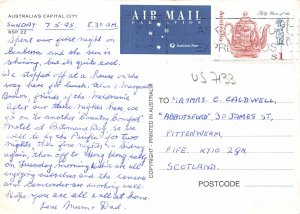 AUSTRALIA'S CAPITAL CITY
SUNDAY 7.5.95. 8.30 AM.
RSP 22
After our first night in
Canberra and the sun is
shining, but its quite cool.
We stopped off at a house on the
way here for lunch. Alex & Margaret
friends of the Melbourne
Aitos on those nights here we
go on to another Country Comfort
Motel at Batemans Bay, so we
will be by the for two
nights then five nights in Sydney
again, then off to Hong Kong early
on Tuesday morning. We are all
enjoying ourselves and the camera
and camcorder are working well.
Hope you are all well at home.
Love Mum & Dad.
COPYRIGHT - PRINTED IN AUSTRALIA
AIR MAIL
PAR AVION
Australia Post
$1
US 733
MR & MRS C. CALDWELL,
'ABBOTSFORD', 30 JAMES ST,
PITTENWEEM,
FIFE. KY10 2QN
SCOTLAND.
POSTCODE